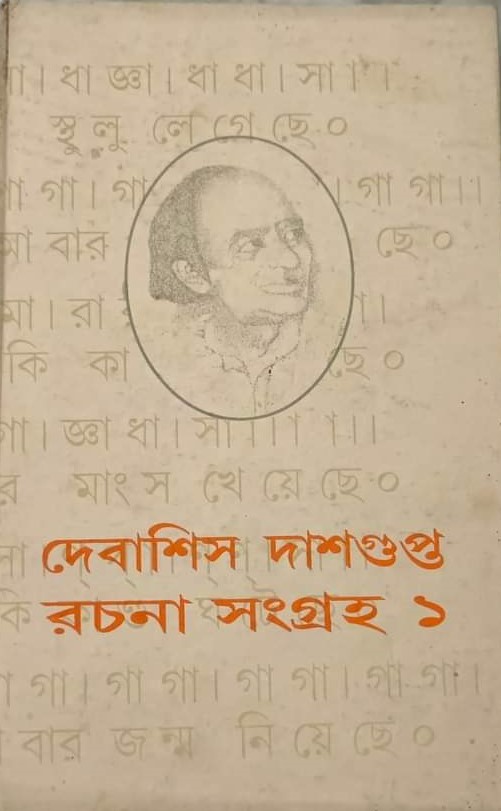 া। ধা জ্ঞা। ধা ধা। সা া া।
স্থু লু লে গে ছে ০
গা গা। গা । গা গা।।
মা বার ছে ০
মা। রা া।
কি কা ছে ০
গা। জ্ঞা ধা। সা।।।
র মাং স খে য়ে ছে ০
দেবাশিস দাশগুপ্ত
রচনা সংগ্রহ ১
া গা। গা গা। গা গা। গা গা।
বার জ ন্ম নি য়ে ছে ০